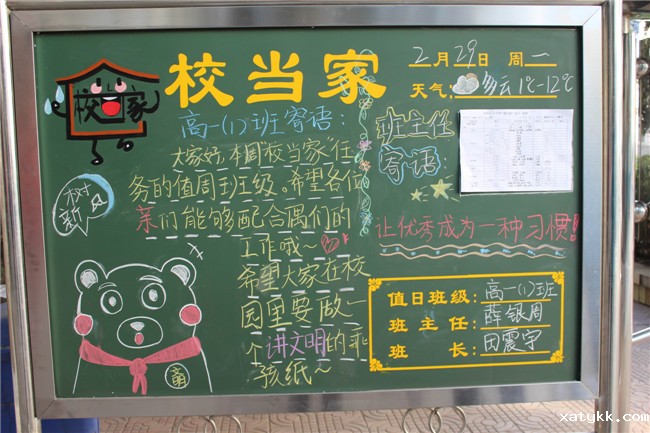 校当家
校当家
2月29日 周一
天气:多云1℃-12℃
高一(1)班寄语:
大家好,本周"校当家"任
务的值周班级。希望各位
亲们能够配合偶们的
工作哦~
希望大家在校
园里要做一
个讲文明的乖
孩纸~
树新风
高一
班主任
寄语:
让优秀成为一种习惯!
值日班级:高一(1)班
班主任:薛银周
班长:田震宇
xatykk.com